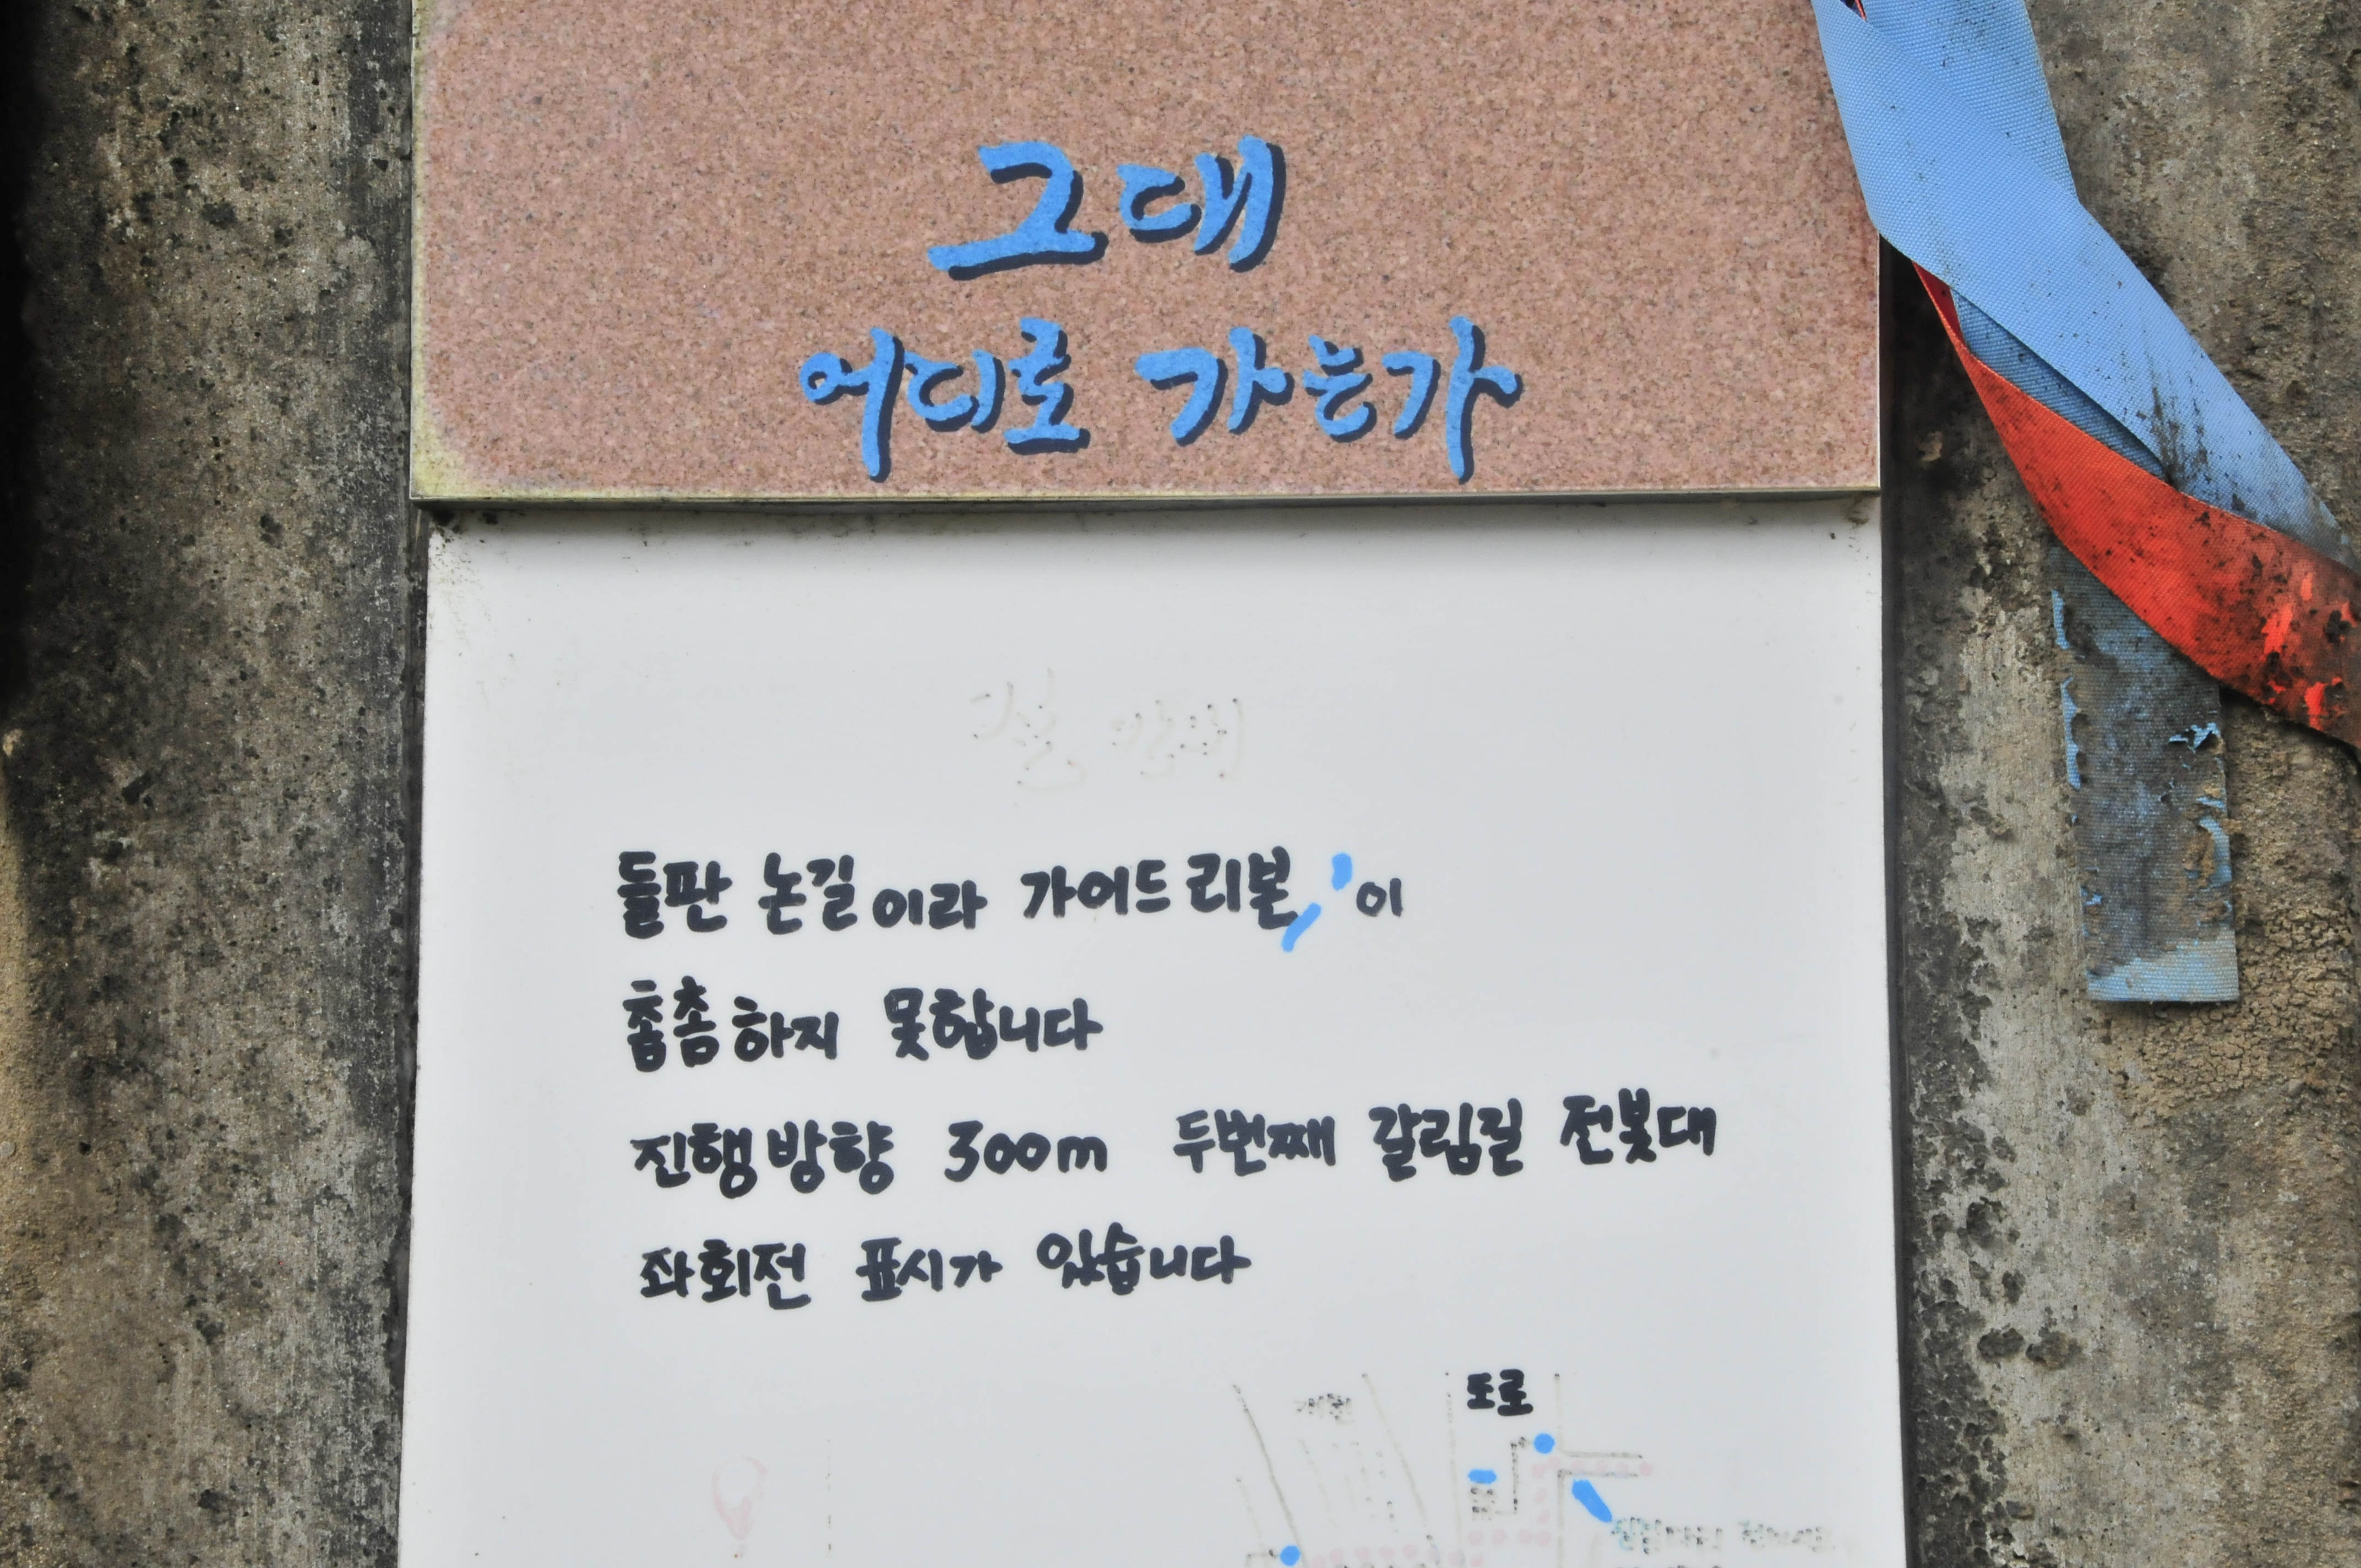 그대
어디로 가는가
들판 논길이라 가이드리본이
촘촘하지 못합니다
진행방향 300m 두번째 갈림길 전봇대
좌회전 표시가 있습니다
도로